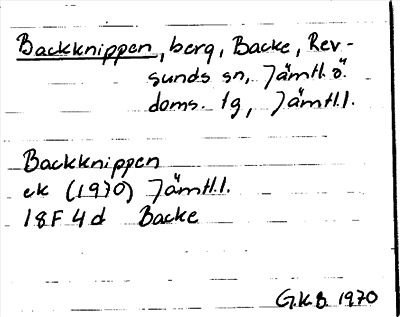 Backknippen, berg, Backe, Rev-
sunds sn, Jämtl. ö.
doms. lg, Jämtl. l.
Backknippen
ek (1970) Jämtl. l.
18F 4d Backe
G.K.B. 1970